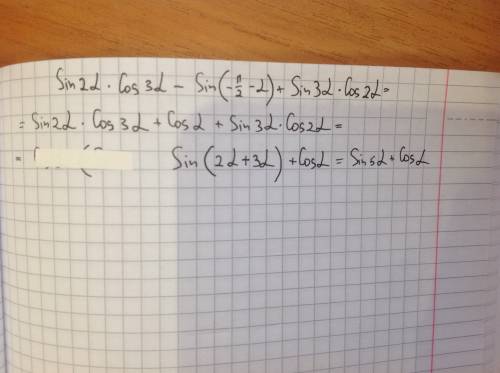 Sin2α · Cos3α − Sin(−π/2 − α) + Sin3α · Cos2α =
= Sin2α · Cos3α + Cosα + Sin3α · Cos2α =
= Sin(2α + 3α) + Cosα = Sin5α + Cosα